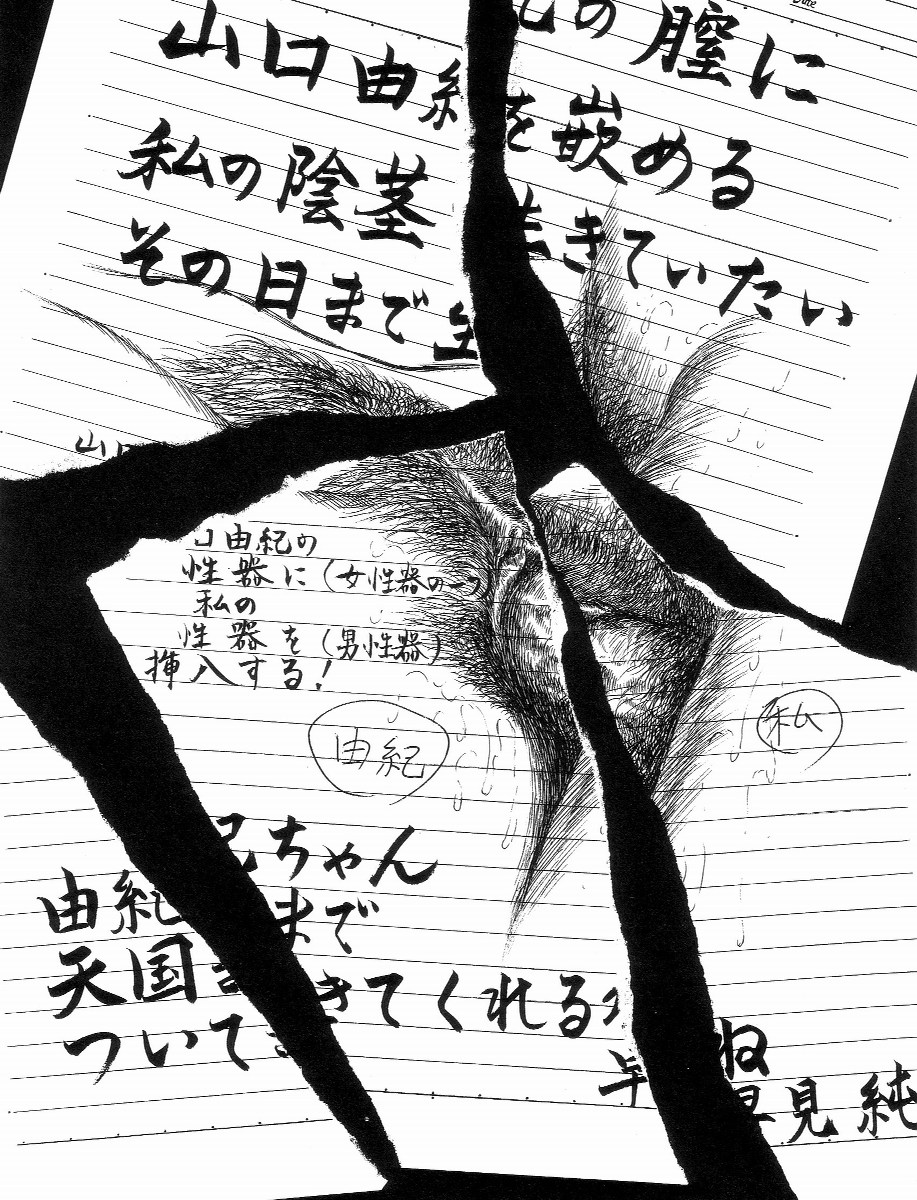 Date
山口由紀の膣に
私の陰茎を嵌める
その日まで生きていたい
山口
口由紀の
性器に(女性器の一つ)
私の
性器を(男性器)
挿入する!
由紀
私
紀ちゃん
由紀まで
天国まできてくれる
ついて
ね
早見純